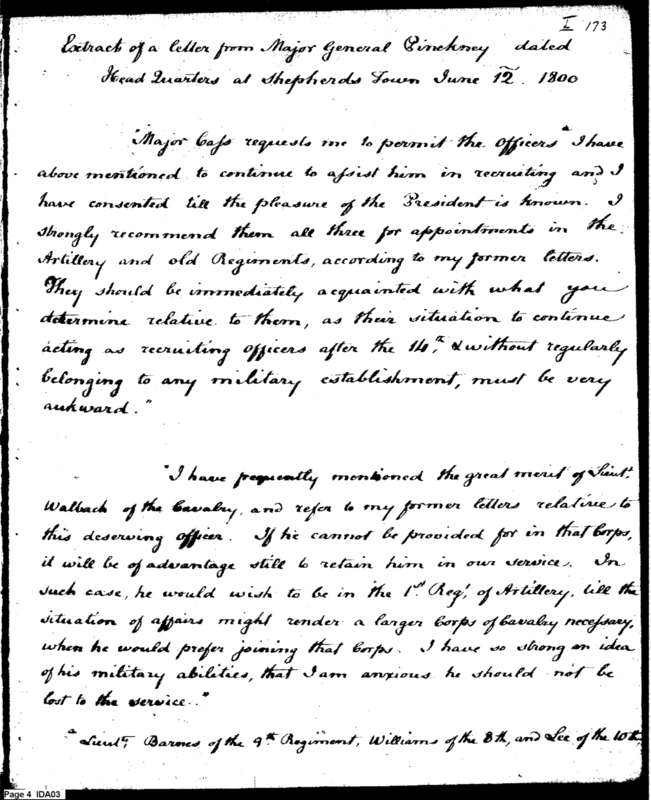 I 173
Extract of a letter from Major General Pinckney dated
Head Quarters at Shepherds Town June 12th. 1800
"Major Cass requests me to permit the officers a I have
above mentioned to continue to assist him in recruiting and I
have consented till the pleasure of the President is known. I
strongly recommend them all three for appointments in the
Artillery and old Regiments, according to my former letters.
They should be immediately acquainted with what you
determine relative to them, as their situation to continue
acting as recruiting officers after the 14th, & without regularly
belonging to any military establishment, must be very
aukward."
"I have frequently mentioned the great merit of Lieut.
Walbach of the Cavalry, and refer to my former letters relative to
this deserving officer. If he cannot be provided for in that Corps,
it will be of advantage still to retain him in our service. In
such case, he would wish to be in the 1st Regt. of Artillery, till the
situation of affairs might render a larger Corps of Cavalry necessary,
when he would prefer joining that Corps. I have so strong an idea
of his military abilities, that I am anxious he should not be
lost to the service."
a Lieuts. Barnes of the 9th Regiment, Williams of the 8th, and Lee of the 10th
Page 4 IDA03